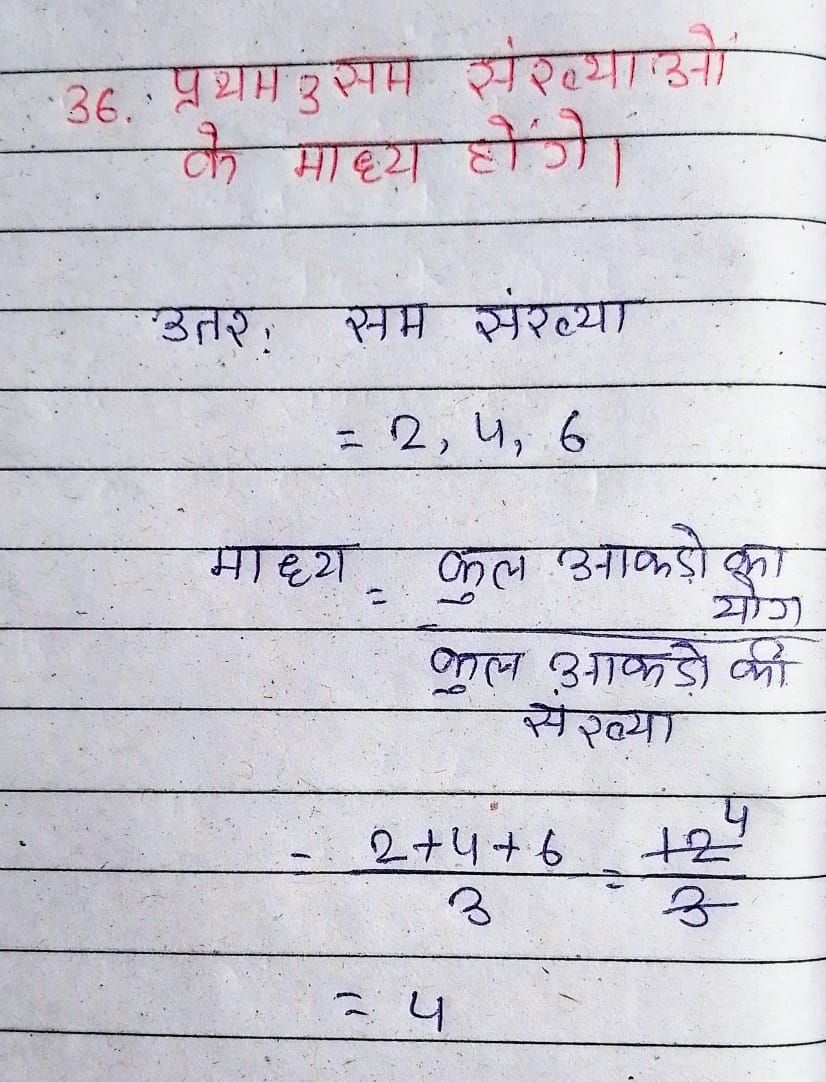 36. प्रथम 3 सम संख्याओं
के माध्य होंगे।
उतर: सम संख्या
= 2, 4, 6
माध्य = कुल आकडो का
योग
कुल आकडो की
संख्या
= 2+4+6 = 12 4
3 3
= 4